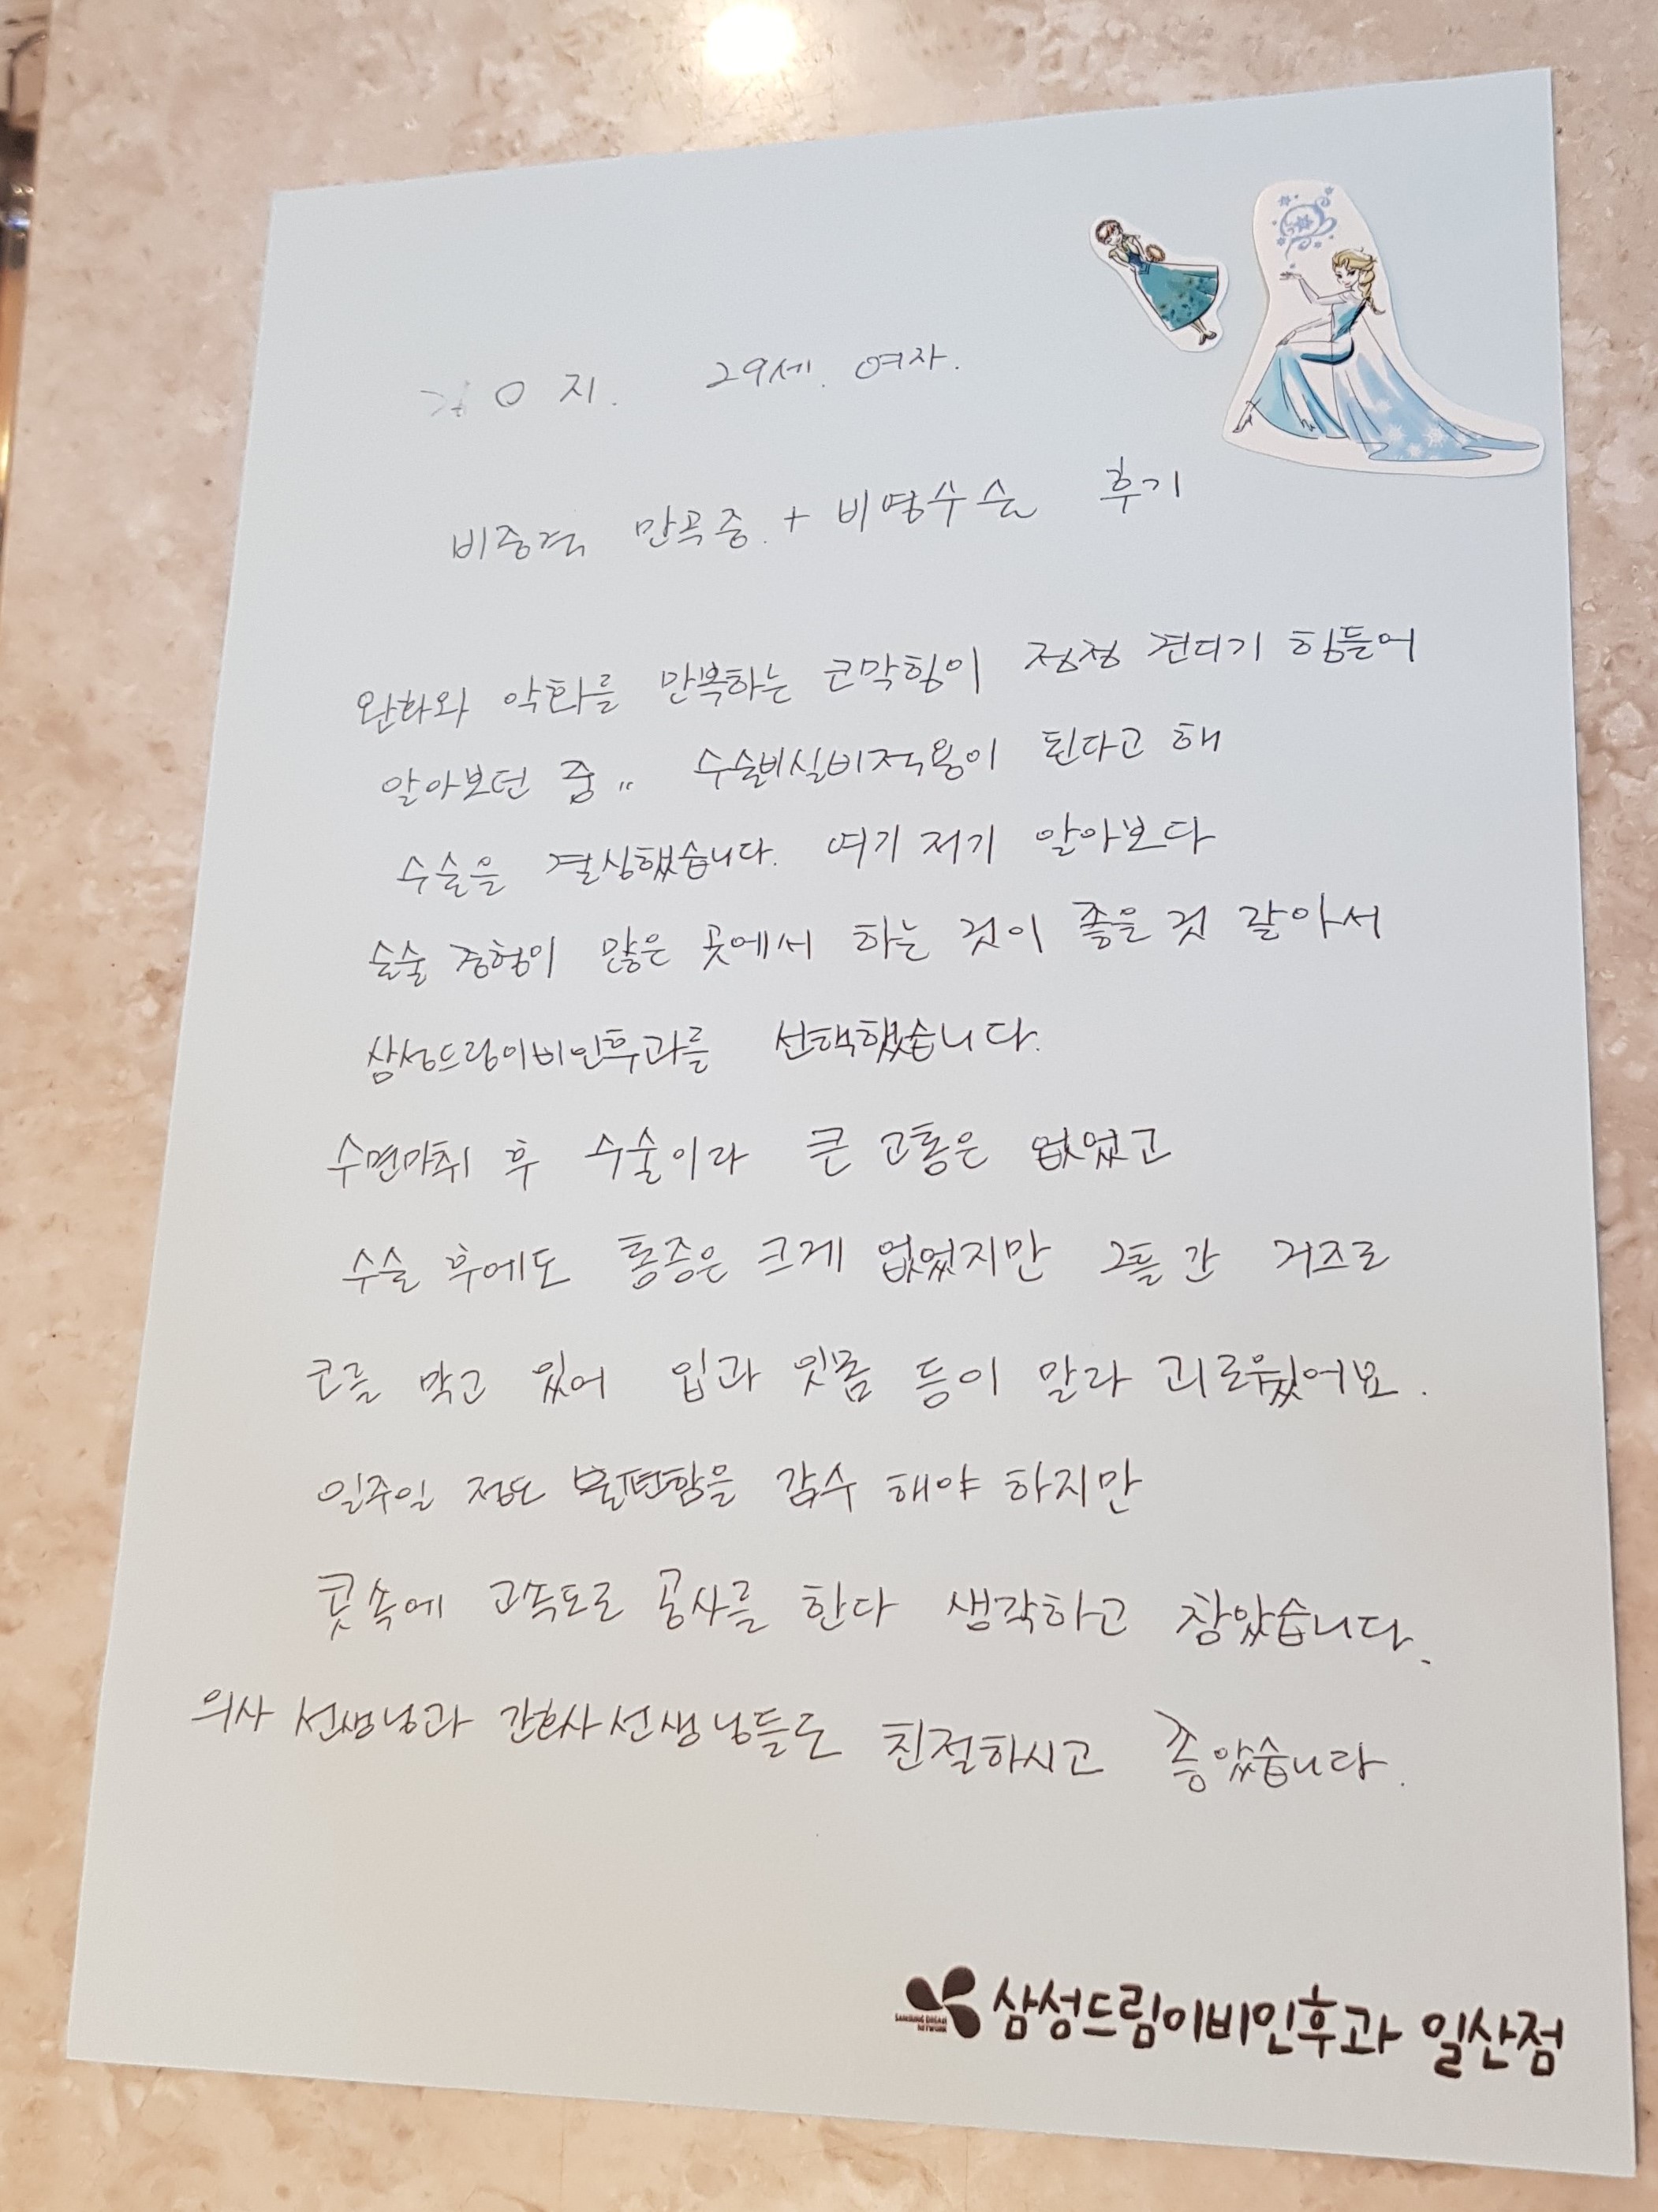 O 지. 29세. 여자.
비중격 만곡증. + 비염수술 후기
완화와 악화를 반복하는 코막힘이 점점 견디기 힘들어
알아보던 중.. 수술비실비적용이 된다고 해
수술을 결심했습니다. 여기 저기 알아보다
수술 경험이 많은 곳에서 하는 것이 좋을 것 같아서
삼성드림이비인후과를 선택했습니다.
수면마취 후 수술이라 큰 고통은 없었고
수술 후에도 통증은 크게 없었지만 2틀간 거즈로
코를 막고 있어 입과 잇몸 등이 말라 괴로웠어요.
일주일 정도 불편함을 감수 해야 하지만
콧속에 고속도로 공사를 한다 생각하고 참았습니다.
의사 선생님과 간호사선생님들도 친절하시고 좋았습니다.
SAMSUNG DREAM NETWORK 삼성드림이비인후과 일산점